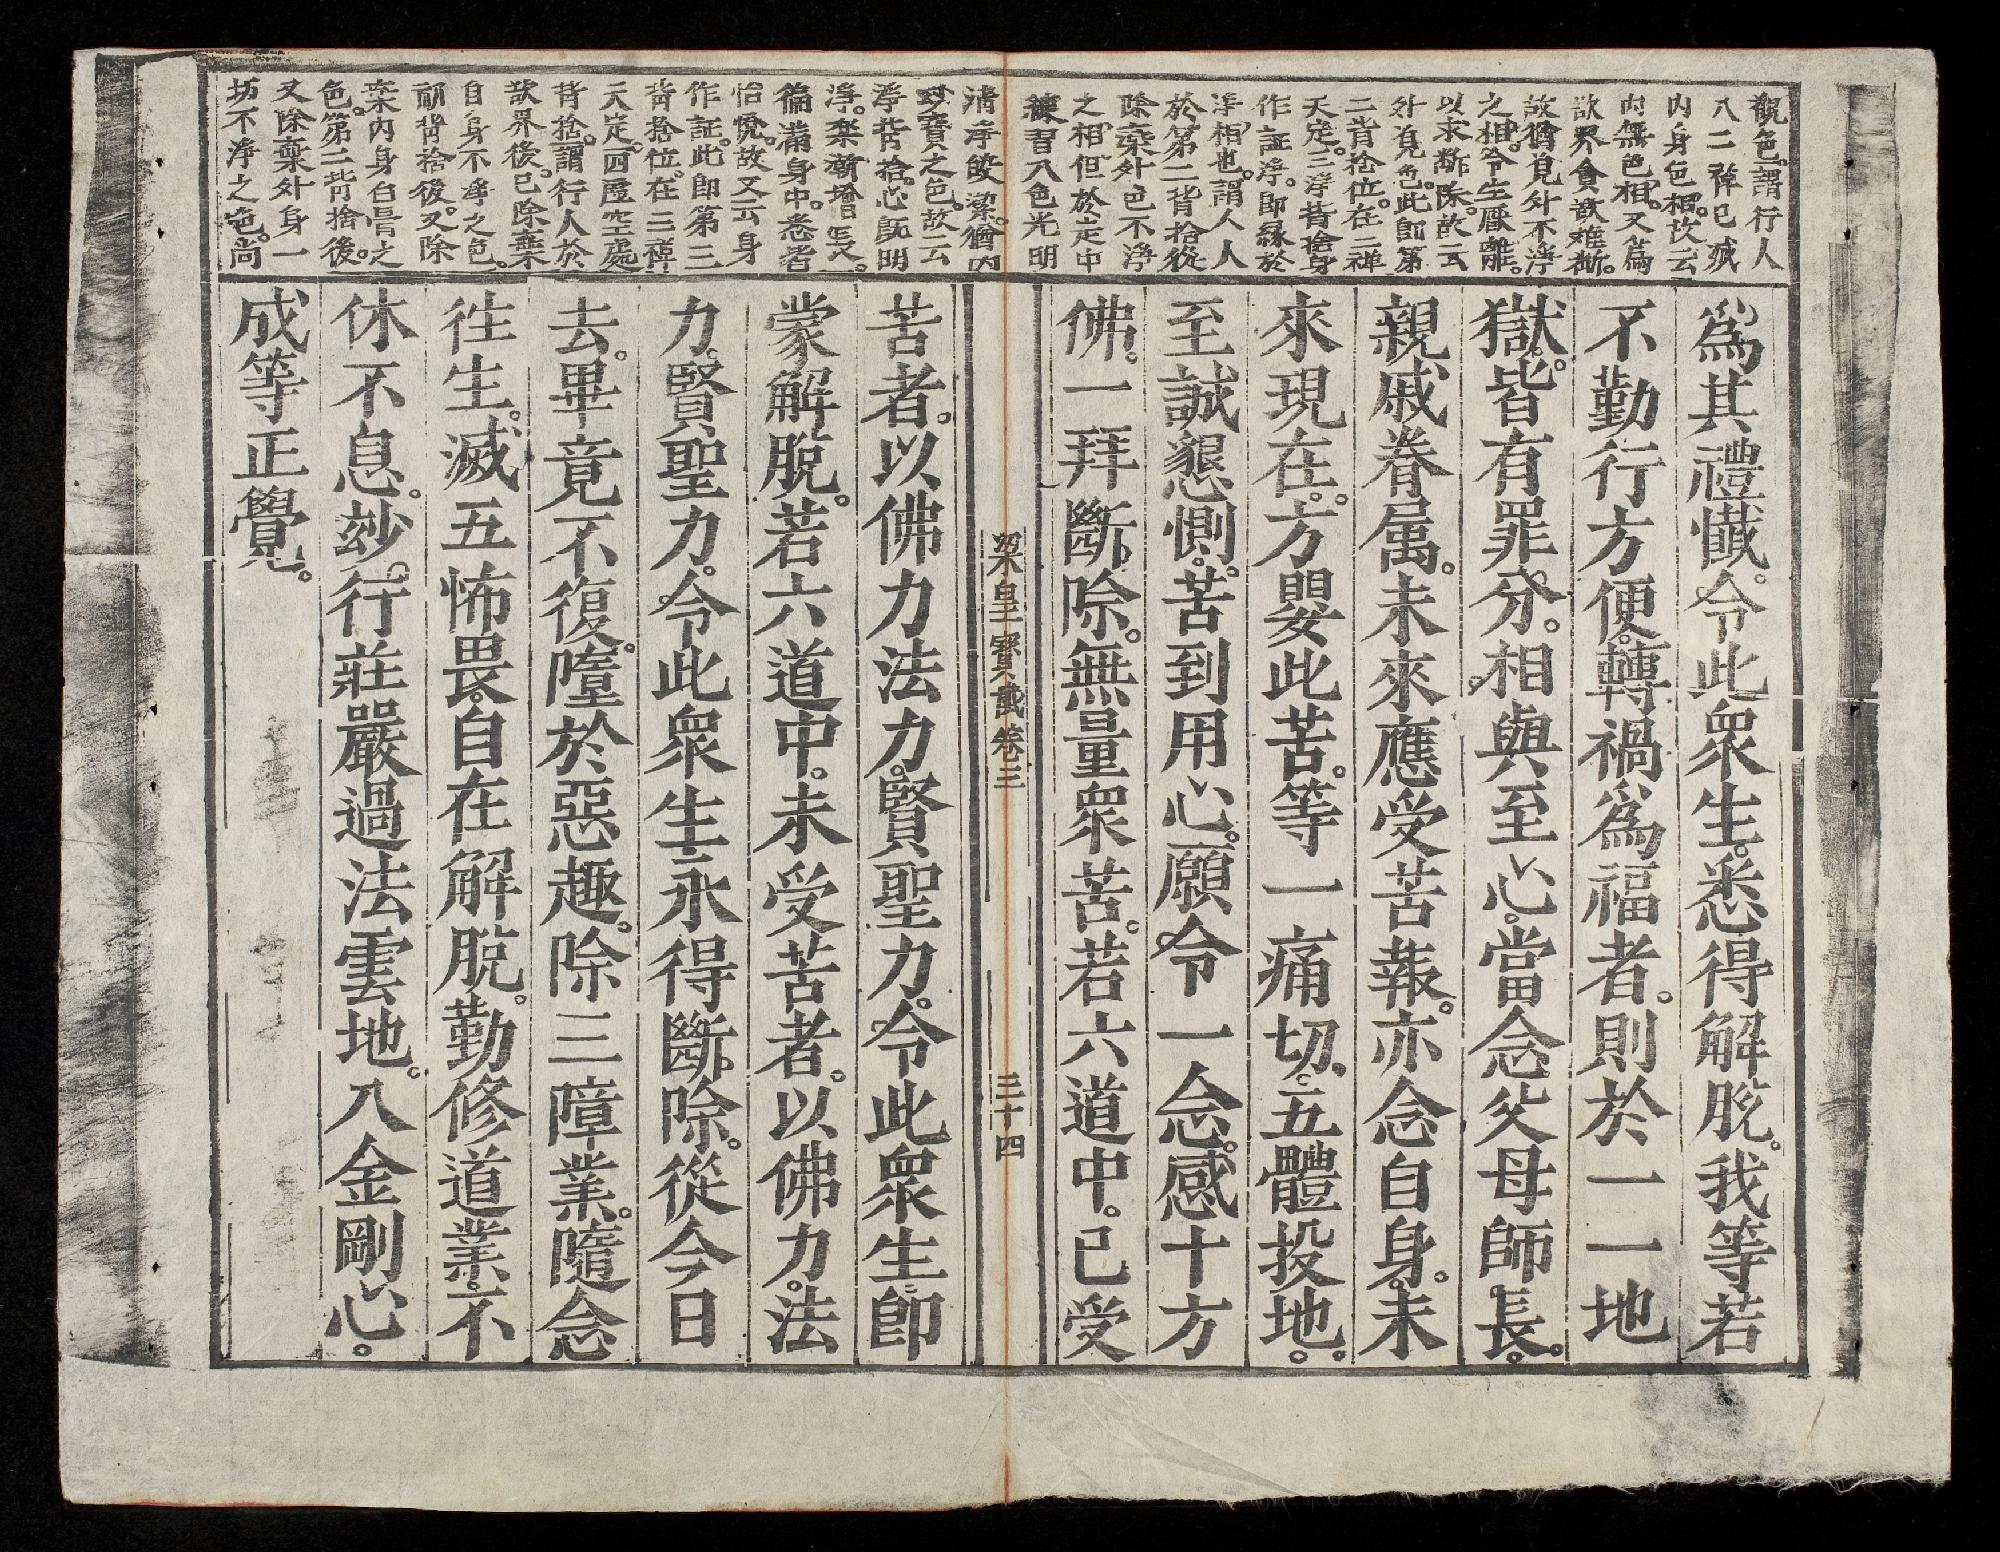 觀色。謂行人
入二禅已㓕
內身色相。故云
內無色相。又爲
欲界貪欲难断。
故猶見外不淨
之相。令生厭離。
以求断除。故云
外覌色。此卽第
二背捨。位在二禅
天定。三淨背捨身
作証淨。卽縁於
淨相也。謂人人
於第二背捨後
除棄外色不淨
之相。但於定中
練習八色光明
清淨皎潔。猶內
妙寶之色。故云
淨背捨。心旣明
淨。楽漸增長。
徧滿身中。悉皆
怡悅。故又云身
作証。此卽第三
背捨。位在三禅
天定。四虛空處
背捨。謂行人於
欲界後。已除棄
自身不淨之色。
初背捨後。又除
棄內身白骨之
色。第二背捨後。
又除棄外身一
切不淨之色。尚
爲其禮懺。令此眾生。悉得解脫。我等若
不勤行方便。轉禍爲福者。則於一一地
獄。皆有罪分。相與至心。當念父母師長。
親戚眷属。未來應受苦報。亦念自身。未
來現在。方嬰此苦。等一痛切。五體投地。
至誠懇惻。苦到用心。願令一念。感十方
佛。一拜斷除。無量眾苦。若六道中。已受
梁皇寶懺卷三
三十四
苦者。以佛力法力。賢聖力。令此眾生。卽
蒙解脫。若六道中。未受苦者。以佛力。法
力。賢聖力。令此眾生。永得斷除。從今日
去。畢竟不復。墮於惡趣。除三障業。隨念
徃生。滅五怖畏。自在解脫。勤修道業。不
休不息。玅行莊嚴。過法雲地。入金剛心。
成等正覺。